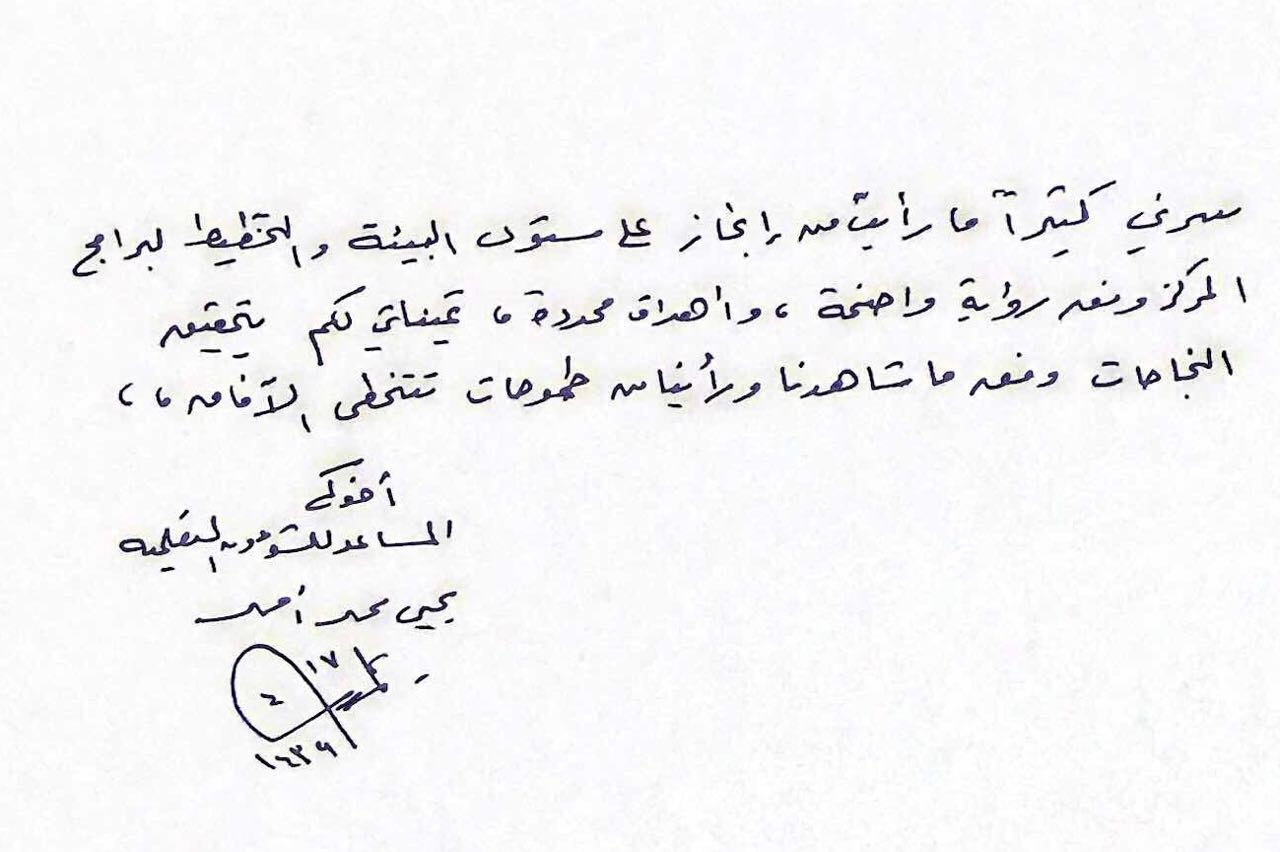 سرني كثيراً ما رأيت من إنجاز على مستوى البيئة والتخطيط لبرامج
المركز وفق رواية واضحة ، وأهداف محددة ، تمنياتي لكم بتحقيق
النجاحات وفق ما شاهدنا ورأينا من طموحات تتخطى الآفاق ، ،
أخوكم
المساعد للشؤون التعليمية
يحيى محمد أحمد
١٧
٤
١٤٣٩